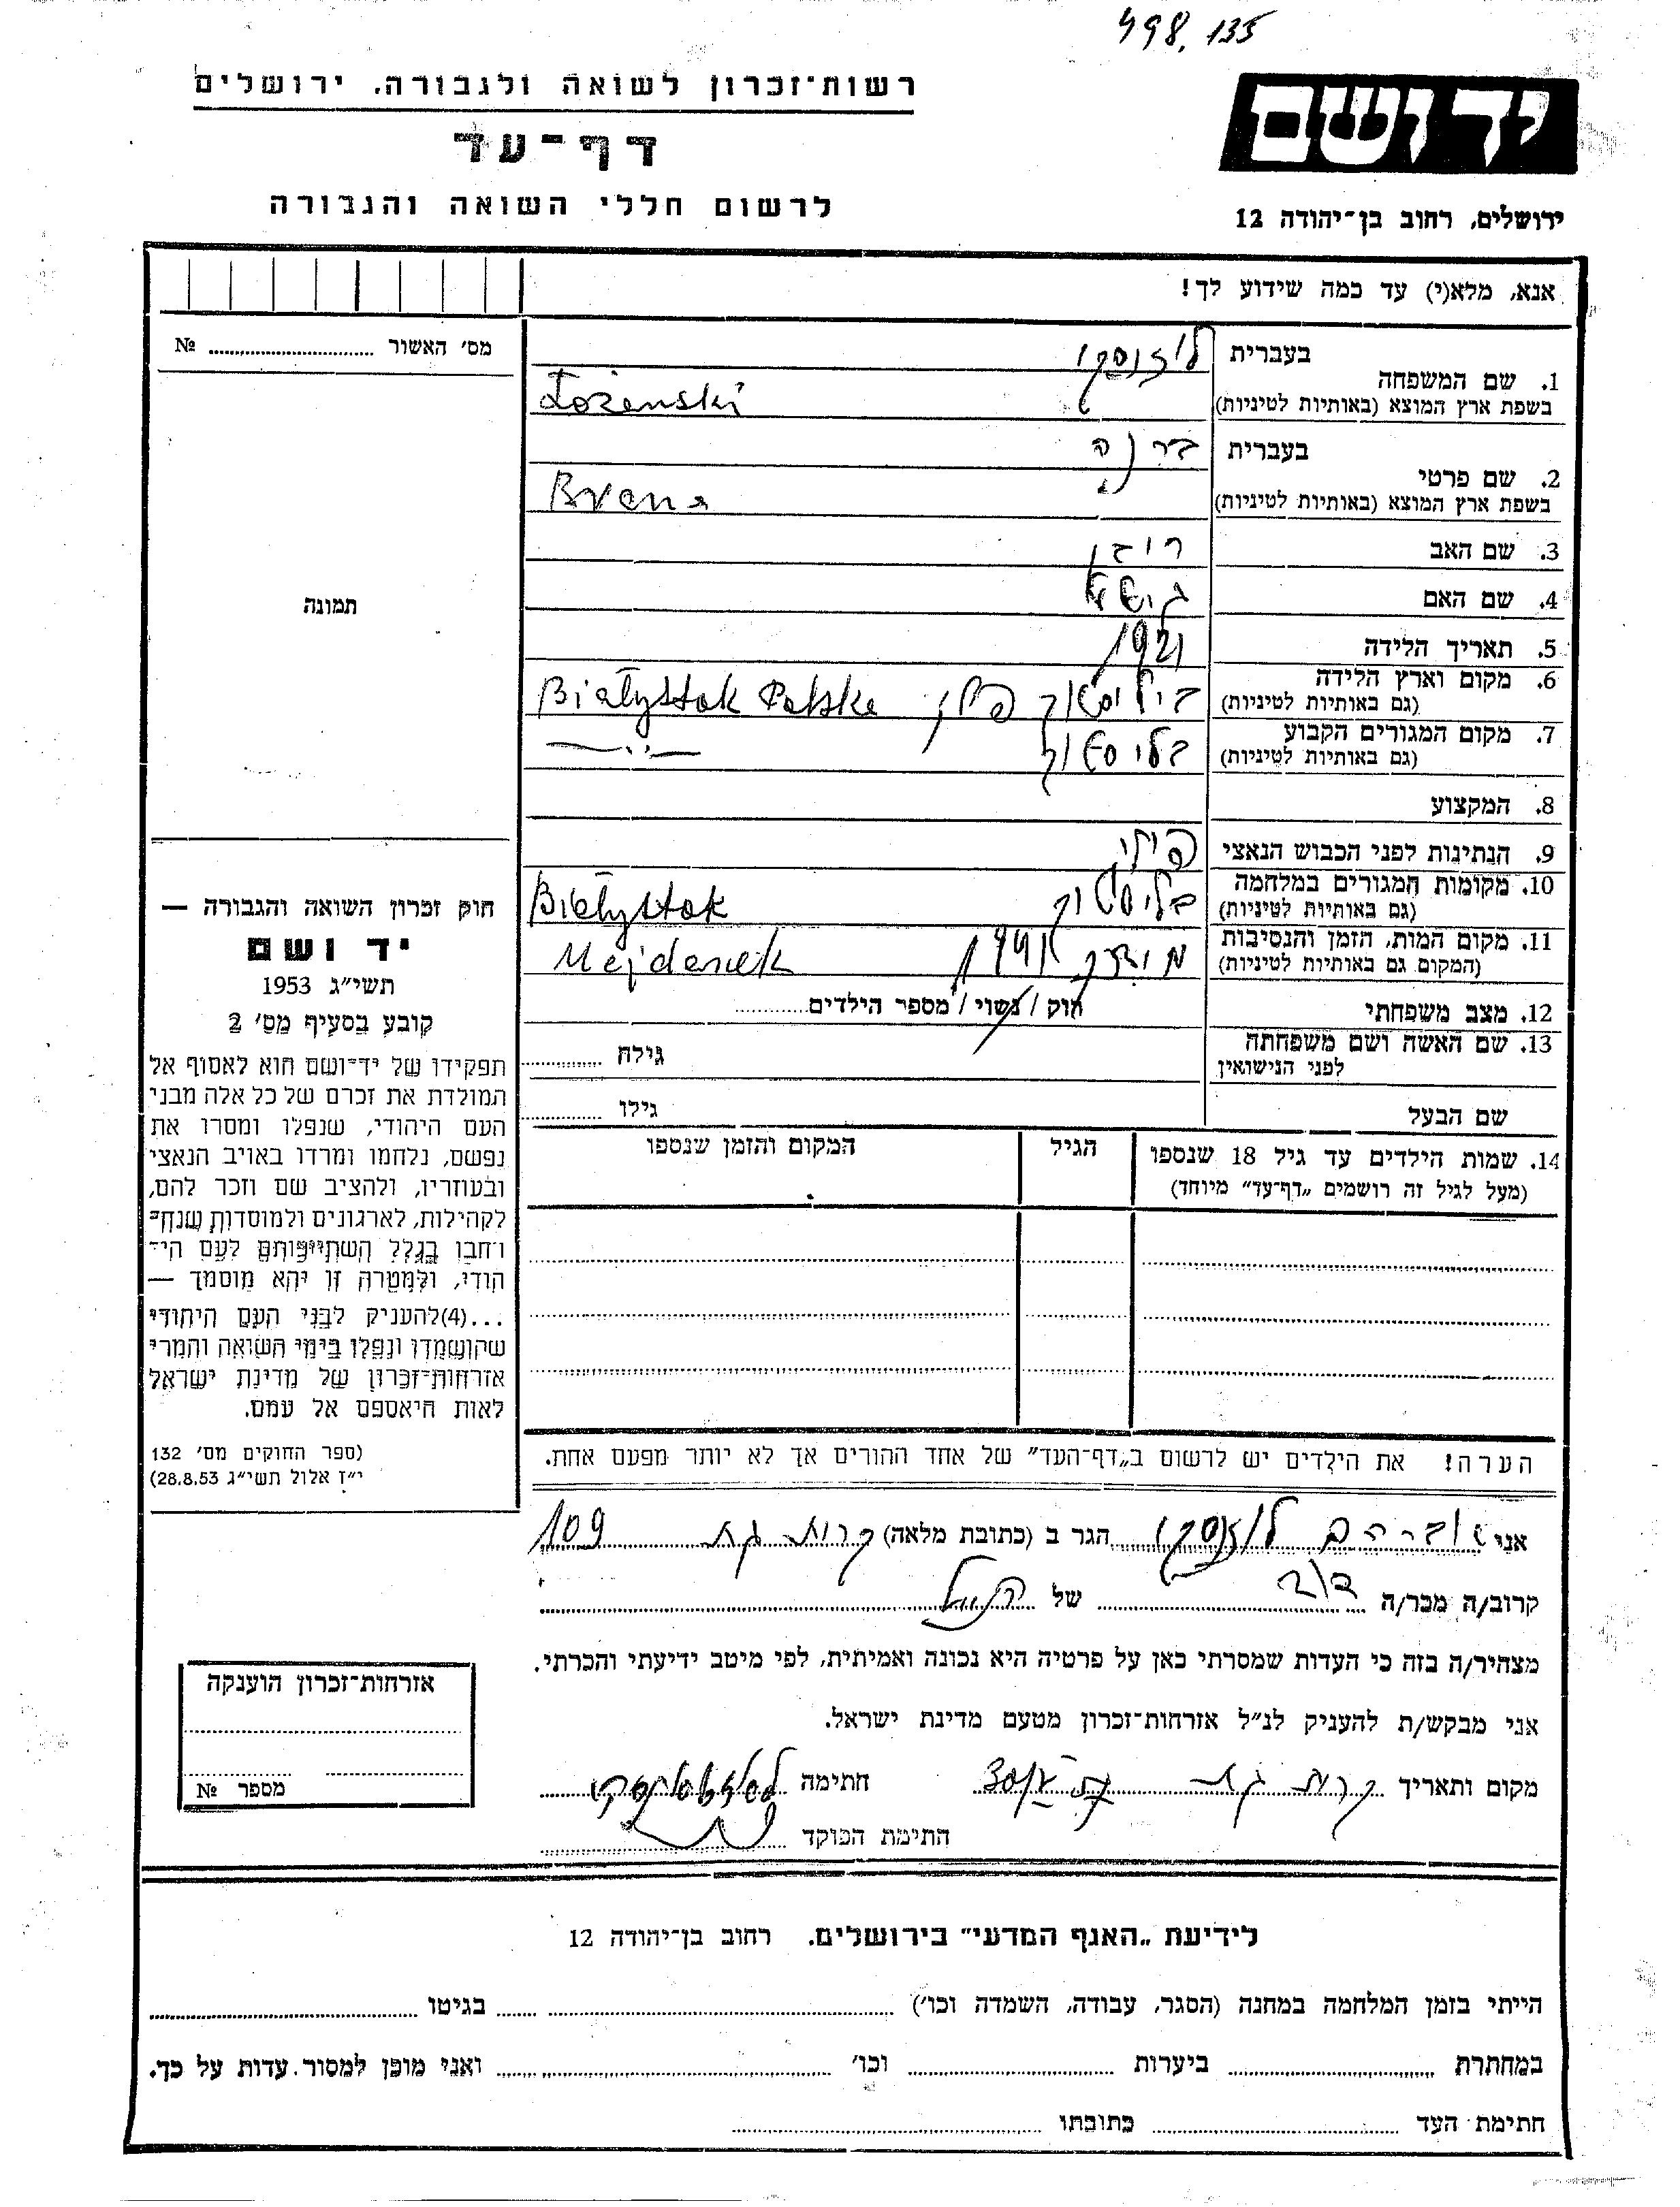 498.135
רשות־זכרון לשואה ולגבורה, ירושלים
ידושם
דף־עד
לרשום חללי השואה והגבורה
ירושלים, רחוב בן־יהודה 12
אנא, מלא(י) עד כמה שידוע לך!
מס׳ האשור ........ №
בעברית לוזנסקי
1. שם המשפחה
בשפת ארץ המוצא (באותיות לטיניות) Łożenski
בעברית ברנה
2. שם פרטי
בשפת ארץ המוצא (באותיות לטיניות) Brena
3. שם האב
4. שם האם
תמונה
5. תאריך הלידה 1921
6. מקום וארץ הלידה
(גם באותיות לטיניות) ביליסטוק פולין Białystok Polska
7. מקום המגורים הקבוע
(גם באותיות לטיניות) בליסטוק —״—
8. המקצוע
9. הנתינות לפני הכבוש הנאצי פולני
10. מקומות המגורים במלחמה
(גם באותיות לטיניות) בליסטוק Białystok
11. מקום המות, הזמן והנסיבות
(המקום גם באותיות לטיניות) Majdanek
12. מצב משפחתי רווק / נשוי / מספר הילדים........
13. שם האשה ושם משפחתה
לפני הנישואין
גילה ........
שם הבעל
גילו ........
14. שמות הילדים עד גיל 18 שנספו
(מעל לגיל זה רושמים „דף־עד״ מיוחד)
הגיל
המקום והזמן שנספו
חוק זכרון השואה והגבורה —
יד ושם
תשי״ג 1953
קובע בסעיף מס׳ 2
תפקידו של יד־ושם הוא לאסוף אל
המולדת את זכרם של כל אלה מבני
העם היהודי, שנפלו ומסרו את
נפשם, נלחמו ומרדו באויב הנאצי
ובעוזריו, ולהציב שם וזכר להם,
לקהילות, לארגונים ולמוסדות שנח־
רחבו בגלל השתייכותם לעם הי־
הודי, ולמטרה זו יהא מוסמך —
...(4)להעניק לבני העם היהודי
שהושמדו ונפלו בימי השואה והמרי
אזרחות־זכרון של מדינת ישראל
לאות היאספם אל עמם.
(ספר החוקים מס׳ 132
י״ז אלול תשי״ג 28.8.53)
הערה! את הילדים יש לרשום ב„דף־העד״ של אחד ההורים אך לא יותר מפעם אחת.
אני אברהם לוזנסקי הגר ב (כתובת מלאה) קרית גת 109
קרוב/ה מכר/ה דוד של
מצהיר/ה בזה כי העדות שמסרתי כאן על פרטיה היא נכונה ואמיתית, לפי מיטב ידיעתי והכרתי.
אני מבקש/ת להעניק לנ״ל אזרחות־זכרון מטעם מדינת ישראל.
מקום ותאריך קרית גת חתימה
חתימת הפוקד
אזרחות־זכרון הוענקה
מספר №
לידיעת „האגף המדעי״ בירושלים. רחוב בן־יהודה 12
הייתי בזמן המלחמה במחנה (הסגר, עבודה, השמדה וכו׳) ........ בגיטו ........
במחתרת ........ ביערות ........ וכו׳ ........ ואני מוכן למסור עדות על כך.
חתימת העד ........ כתובתו ........